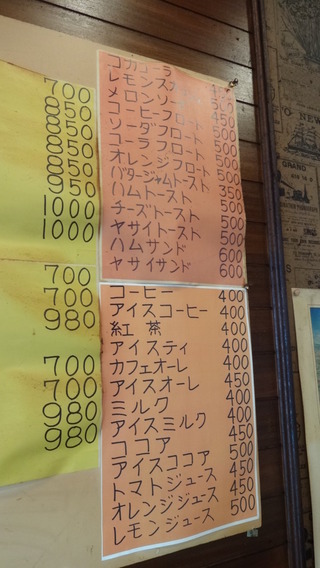 700
850
850
850
850
950
1000
1000
700
700
980
700
700
980
980
コカコーラ
レモンス
メロンソーダ 450
コーヒーフロート 500
ソーダフロート 500
コーラフロート 500
オレンジフロート 500
バタージャムトースト 350
ハムトースト 500
チーズトースト 500
ヤサイトースト 500
ハムサンド 600
ヤサイサンド 600
コーヒー 400
アイスコーヒー 400
紅茶 400
アイスティ 400
カフェオーレ 400
アイスオーレ 450
ミルク 400
アイスミルク 400
ココア 450
アイスココア 500
トマトジュース 450
オレンジジュース 450
レモンジュース 500